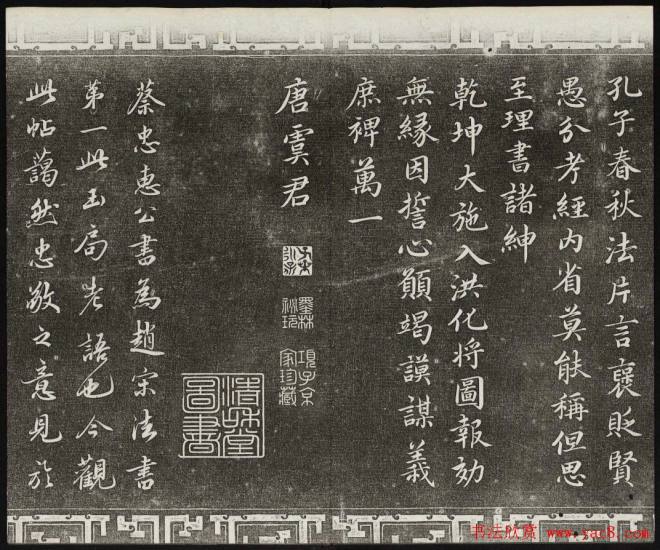 孔子春秋法片言襃貶賢
愚分考經内省莫能稱但思
至理書諸紳
乾坤大施入洪化将圖報効
無縁因誓心顛竭謨謀義
庶裨萬一
唐虞君
墨林
祕玩
項子京
家珍藏
蔡忠惠公書為趙宋法書
第一此玉局老語也今觀
此帖藹然忠敬之意見於
书法欣赏 www.yac8.com